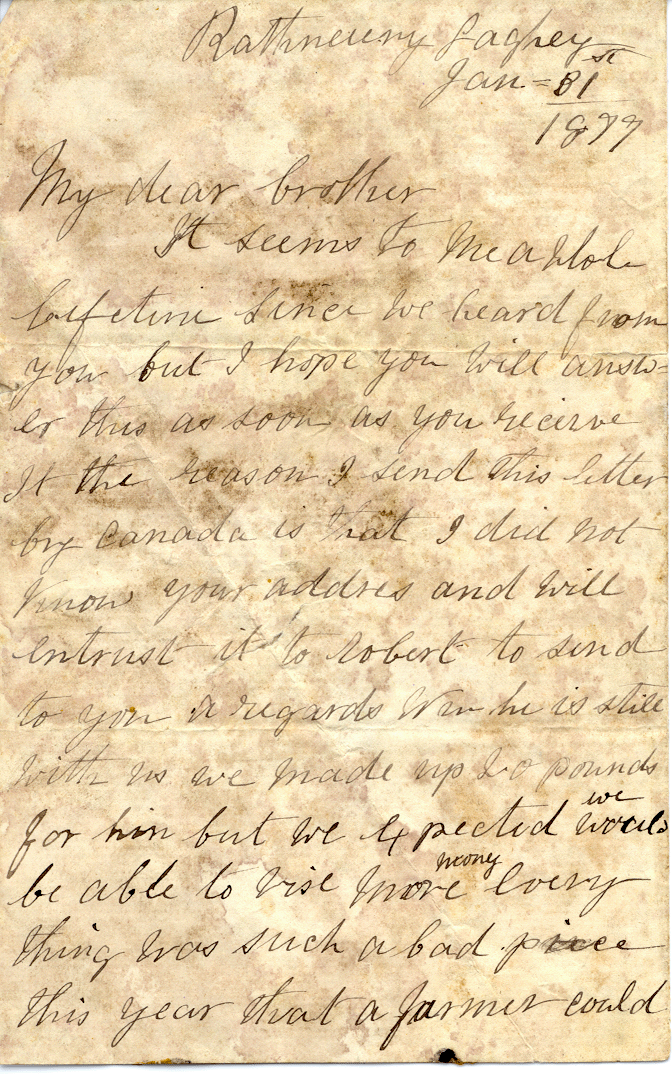 Rathneeny Laghey
Jan - 31st
1877
My dear brother
It seems to me a whole
lifetime since we heard from
you but I hope you will answ-
er this as soon as you recieve
It the reason I send this letter
by canada is that I did not
know your addres and will
entrust it to Robert to send
to you. a regards Wm he is still
with us we made up 20 pounds
for him but we expected we would
be able to rise more mony Every
thing was such a bad piece
this year that a farmer could